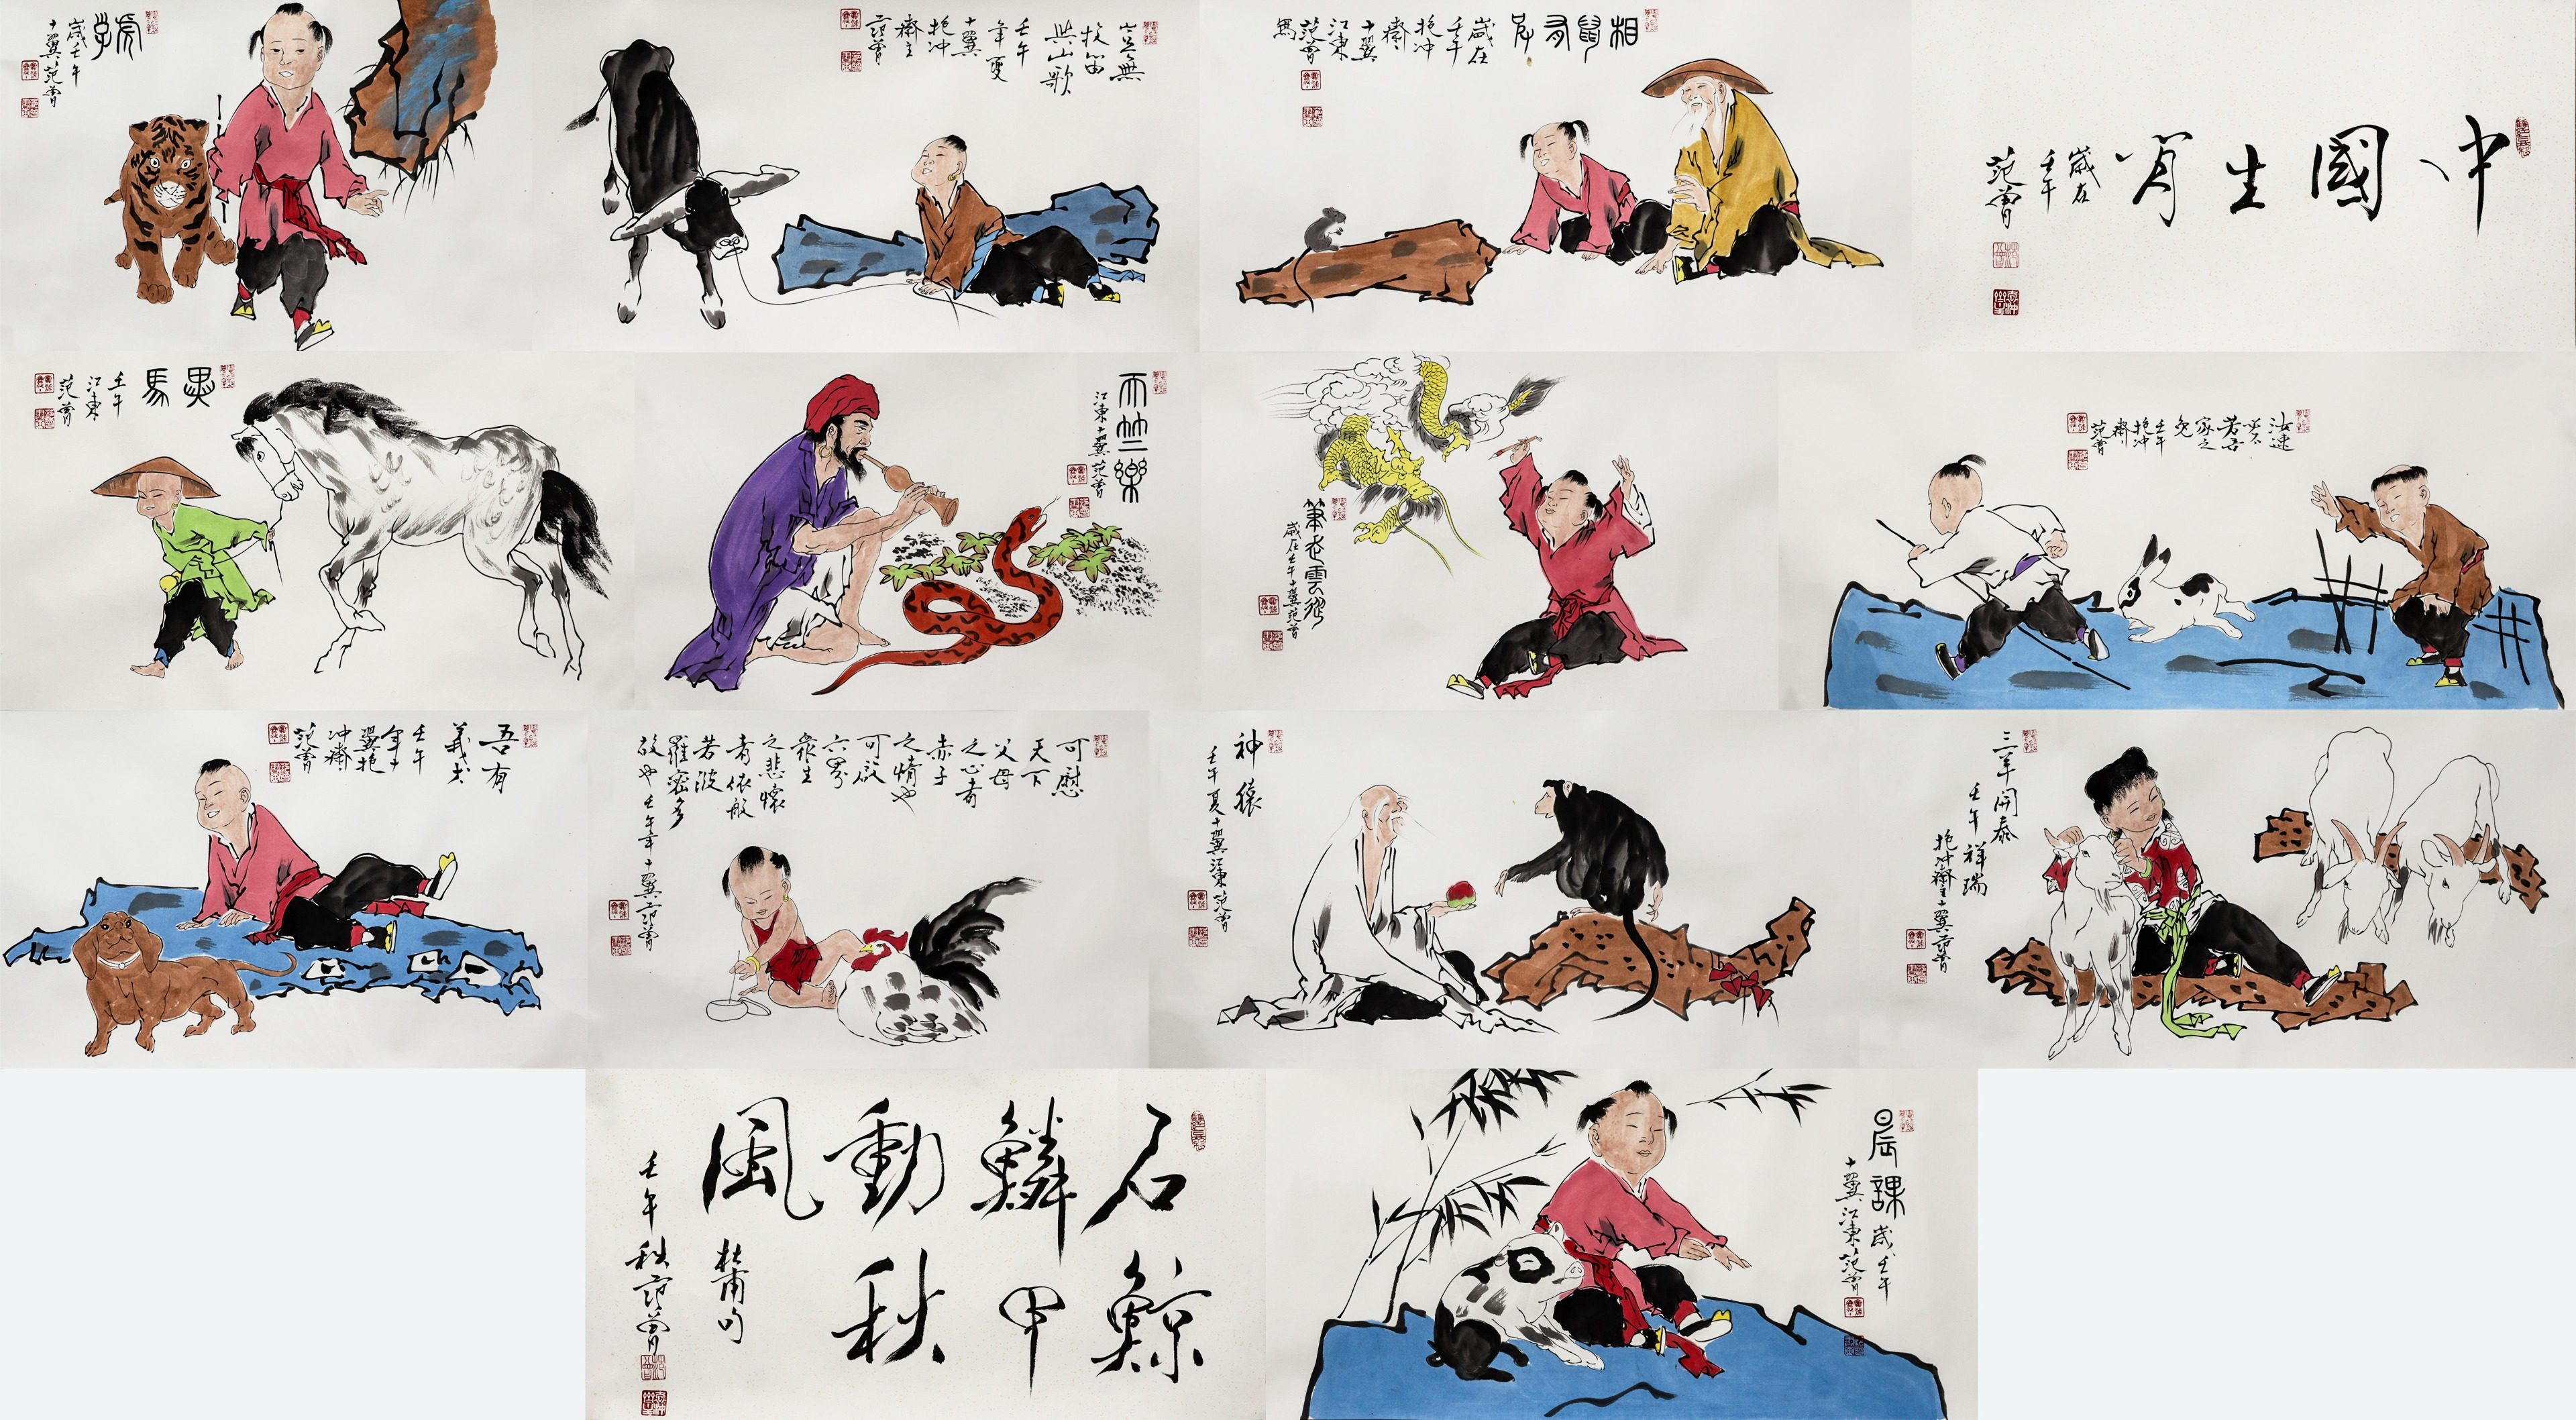 中國生肖
歲在
壬午
范曾
相鼠有皮
歲在
壬午
抱冲
齋
十翼
江東
范曾
寫
豈無
牧笛
與山歌
壬午
年夏
十翼
抱冲
齋主
范曾
虎
歲壬午
十翼范曾
汝速
必不
若吾
家之
兔
壬午
抱冲
齋
范曾
筆走雲從
歲在壬午十翼范曾
天竺樂
江東十翼范曾
黑馬
壬午
江東
范曾
三羊開泰
壬午祥瑞
抱冲齋主十翼范曾
神猿
壬午夏十翼江東范曾
可慰
天下
父母
之心者
赤子
之情也
可啟
六界
眾生
之悲懷
者依般
若波
羅密多
故也壬午年十翼范曾
吾有
義犬
壬午
年十
翼抱
冲齋
范曾
晨課歲壬午
十翼江東范曾
石鯨
鱗甲
動秋
風杜甫句
壬午秋范曾